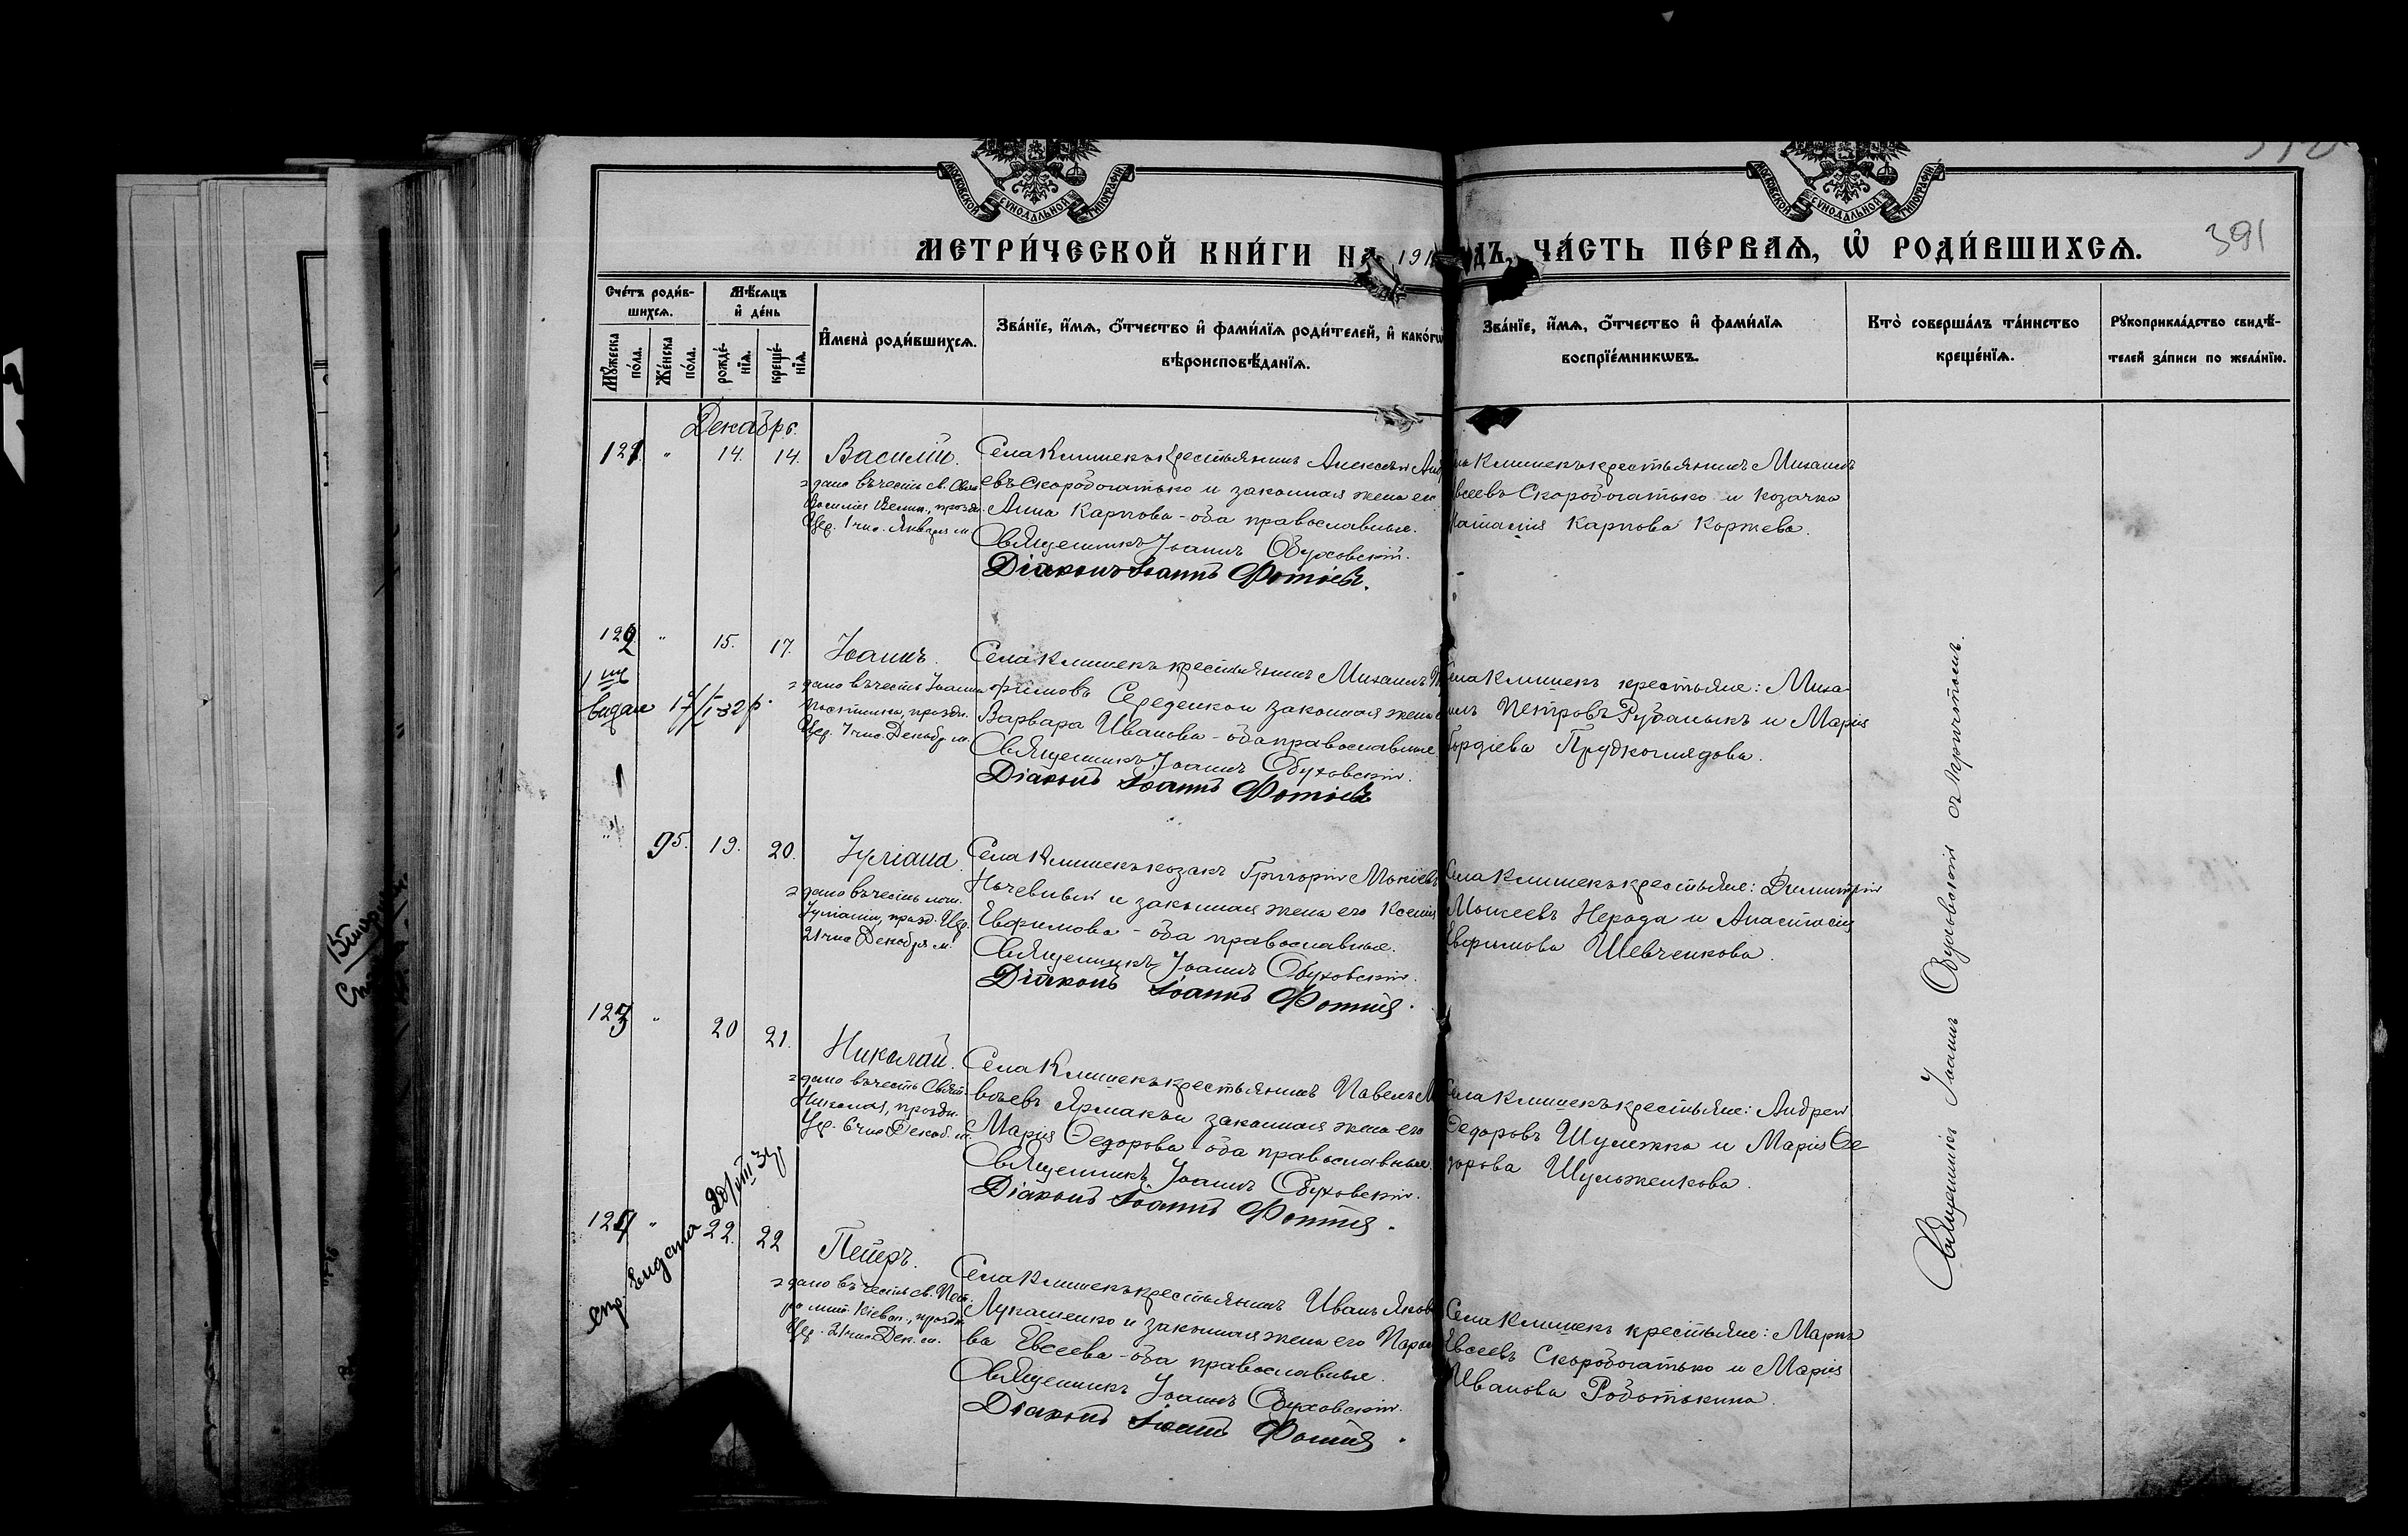 МОСКОВСКОЙ СУНОДАЛЬНОЙ ТИПОГРАФІИ
МОСКОВСКОЙ СУНОДАЛЬНОЙ ТИПОГРАФІИ
391
МЕТРИ́ЧЕСКОЙ КНИ́ГИ НА 191 ДЪ, ЧА́СТЬ ПЕ́РВАЯ, Ѡ҆ РОДИ́ВШИХСЯ.
Сче́тъ роди́в-
шихся.
Мѣ́сяцъ
и҆ де́нь
Мꙋ́жеска по́ла.
Же́нска по́ла.
рожде́-нїя.
креще́-нїя.
И҆мена̀ роди́вшихся.
Зва́нїе, и҆́мя, ѻ҆́тчество и҆ фами́лїя роди́телей, и҆ како́гѡ
вѣроисповѣ́данїя.
Зва́нїе, и҆́мя, ѻ҆́тчество и҆ фами́лїя
воспрїе́мникѡвъ.
Кто̀ соверша́лъ та́инство
креще́нїя.
Рꙋкоприкла́дство свидѣ́-
телей за́писи по жела́нїю.
Декабрь.
121 " 14. 14. Василій.
дано въ честь св.
Василія Велик., праздн.
Цер. 1 чис. Января м.
Села Клишекъ крестьянинъ Алексѣй Анд
евъ Скоробогатько и законная жена его
Анна Карпова - оба православные.
Священникъ Іоаннъ Обуховскій.
Діаконъ Іоаннъ Фотіевъ.
Клишекъ крестьянинъ Михаилъ
всеевъ Скоробогатько и козачка
Наталія Карпова Коржева.
122 " 15. 17. Іоаннъ.
видан 17/I-32 р.
дано въ честь Іоанна
постника, праздн.
Цер. чис. Декабр. м.
Села Клишекъ крестьянинъ Михаилъ
фимовъ Середенко и законная жена
Варвара Иванова - оба православные
Священникъ Іоаннъ Обуховскій.
Діаконъ Іоаннъ Фотіевъ
Села Клишекъ крестьяне: Миха-
илъ Петровъ Рубанъ и Марія
Гордіева Прудкоглядова.
" 95. 19. 20. Іуліана.
дано въ честь муч.
Іуліаніи, празд. Цер.
21 чис. Декабря м.
Села Клишекъ козакъ Григорій Мокіевъ
Ночевный и законная жена его Ксенія
Евфимова - оба православные.
Священникъ Іоаннъ Обуховскій.
Діаконъ Іоаннъ Фотіев.
Села Клишекъ крестьяне: Димитрій
Моисеевъ Нерода и Анастасія
Евфимова Шевченкова.
123 " 20 21. Николай.
дано въ честь Святит.
Николая, праздн.
Цер. 6 чис. Декаб. м.
Села Клишекъ крестьянинъ Павелъ
вѣевъ Ярмакъ и законная жена его
Марія Ѳедорова - оба православные.
Священникъ Іоаннъ Обуховскій.
Діаконъ Іоаннъ Фотіев.
Села Клишекъ крестьяне: Андрей
Ѳедоровъ Шулежко и Марія Ѳе
дорова Шульженкова.
124 " 22. 22 Петръ.
спр. видана 20/VIII 3
дано въ честь св. Пет-
ра мит. Кіевск., праздн.
Цер. 21 чис. Дек. м.
Села Клишекъ крестьянинъ Иванъ Яков
Лукашенко и законная жена его Парас
ва Евсеева - оба православные.
Священникъ Іоаннъ Обуховскій.
Діаконъ Іоаннъ Фотіев.
Села Клишекъ крестьяне: Маркъ
Евсеевъ Скоробогатько и Марія
Иванова Роботькина.
Священникъ Іоаннъ Обуховскій съ причтомъ.